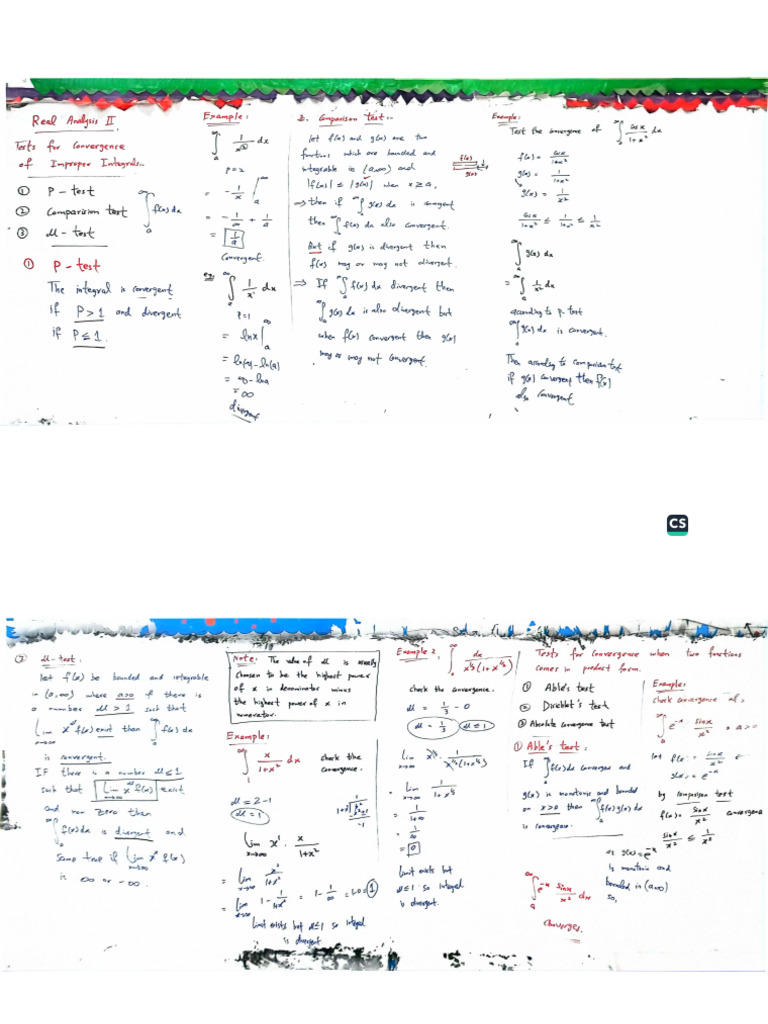 Real Analysis II
Tests for Convergence
of Improper Integrals.
① P - test
② Comparision test ∫_a^∞ f(x) dx
③ μ - test
① P - test
The integral is convergent
if P > 1 and divergent
if P ≤ 1.
Example:
∫_a^∞ 1/x² dx
P = 2
= -1/x |_a^∞
= -1/∞ + 1/a
= 1/a
Convergent.
eg:
∫_a^∞ 1/x dx
P = 1
= ln x |_a^∞
= ln(∞) - ln(a)
= ∞ - ln a
= ∞
divergent
2. Comparison test..
let f(x) and g(x) are two
functions which are bounded and
integrable in (a,∞) and
|f(x)| ≤ |g(x)| when x ≥ a,
f(x)
g(x)
⇒ then if ∫_a^∞ g(x) dx is convergent
then ∫_a^∞ f(x) dx also convergent.
But if g(x) is divergent then
f(x) may or may not divergent.
⇒ If ∫_a^∞ f(x) dx divergent then
∫_a^∞ g(x) dx is also divergent but
when f(x) convergent then g(x)
may or may not convergent.
Example:
Test the convergence of ∫_a^∞ cos x/1+x² dx
f(x) = cos x/1+x²
g(x) = 1/1+x²
g(x) = 1/x²
cos x/1+x² ≤ 1/1+x² ≤ 1/x²
∫_a^∞ g(x) dx
= ∫_a^∞ 1/x² dx
according to p. test
∫_a^∞ g(x) dx is convergent.
Then according to comparison test
if g(x) convergent then f(x)
also convergent
CS
μ - test:
let f(x) be bounded and integrable
in (a,∞) where a>0 if there is
a number μ > 1 such that
lim_{x→∞} x^μ f(x) exist than ∫_a^∞ f(x) dx
is convergent.
IF there is a number μ ≤ 1
such that lim_{x→∞} x^μ f(x) exist
and non zero than
∫_a^∞ f(x) dx is divergent and
same true if lim_{x→∞} x^μ f(x)
is ∞ or -∞.
Note: The value of μ is usually
chosen to be the highest power
of x in denominator minus
the highest power of x in
numerator.
Example:
∫_1^∞ x/1+x² dx check the
convergence.
μ = 2 - 1
μ = 1
lim_{x→∞} x¹ · x/1+x²
= lim_{x→∞} x²/1+x²
= lim_{x→∞} 1 - 1/1+x² = 1 - 1/∞ = 1-0 = 1
limit exists but μ ≤ 1 so integral
is divergent
Example 2:
check the convergence.
μ = 1/3 - 0
μ = 1/3 μ ≤ 1
= 1/∞
= 0
limit exists but
μ ≤ 1 so integral
is divergent.
Tests for Convergence when two functions
comes in product form.
① Able's test
② Diricblet's test
③ Absolute convergence test
① Able's test:
If ∫_a^∞ f(x) dx converges and
g(x) is monotonic and bounded
on x>0 then ∫_a^∞ f(x) g(x) dx
is converges.
Example:
check convergence of,
∫_a^∞ e^{-x} sin x/x², a>0
let f(x) = sin x/x²
g(x) = e^{-x}
by comparison test
f(x) = sin x/x² convergence
sin x/x² ≤ 1/x²
as g(x) = e^{-x}
is monotonic and
bounded in (a,∞)
so,
∫_a^∞ e^{-x} sin x/x² dx
converges.